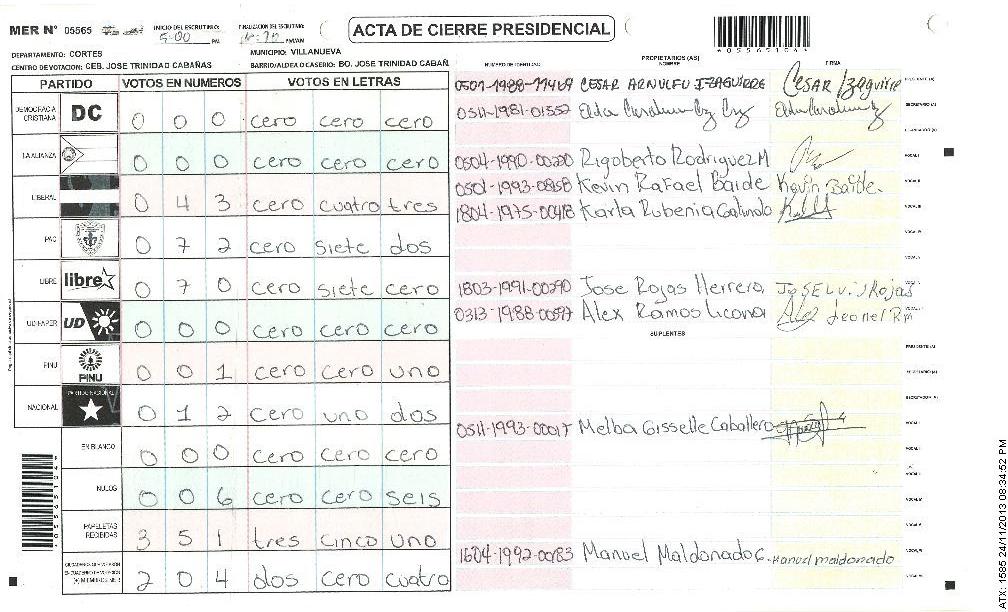 MER N° 05565
INICIO DEL ESCRUTINIO:
5:00 PM
FINALIZACION DEL ESCRUTINIO:
PM/AM
ACTA DE CIERRE PRESIDENCIAL
DEPARTAMENTO: CORTES
MUNICIPIO: VILLANUEVA
CENTRO DE VOTACION: CEB. JOSE TRINIDAD CABAÑAS
BARRIO/ALDEA O CASERIO: BO. JOSE TRINIDAD CABAÑ
PARTIDO VOTOS EN NUMEROS VOTOS EN LETRAS
DEMOCRACIA CRISTIANA DC 0 0 0 cero cero cero
LA ALIANZA 0 0 0 cero cero cero
LIBERAL 0 4 3 cero cuatro tres
PAC 0 7 2 cero siete dos
LIBRE libre 0 7 0 cero siete cero
UD/FAPER UD 0 0 0 cero cero cero
PINU PINU 0 0 1 cero cero uno
NACIONAL PARTIDO NACIONAL 0 1 2 cero uno dos
EN BLANCO 0 0 0 cero cero cero
NULOS 0 0 6 cero cero seis
PAPELETAS RECIBIDAS 3 5 1 tres cinco uno
2 0 4 dos cero cuatro
NUMERO DE IDENTIDAD PROPIETARIOS (AS) NOMBRE FIRMA
CESAR ARNULFO IZAGUIRRE Cesar Izaguirre PRESIDENTE (A)
0511-1981-01552 SECRETARIO (A)
ESCRUTADOR (A)
0504-1990-00220 Rigoberto Rodriguez M VOCAL I
0501-1993-0858 Kevin Rafael Baide Kevin Baide VOCAL II
1804-1975-00418 Karla Rubenia Galindo VOCAL III
VOCAL IV
VOCAL V
1803-1991-00290 Jose Rojas Herrera
0313-1988-00597 Alex Ramos Licona
SUPLENTES
PRESIDENTE (A)
SECRETARIO (A)
ESCRUTADOR (A)
0511-1993-00017 Melba Gisselle Caballero VOCAL I
VOCAL II
1604-1992-00183 Manuel Maldonado G. Manuel maldonado
ATX: 1585 24/11/2013 08:34:52 PM